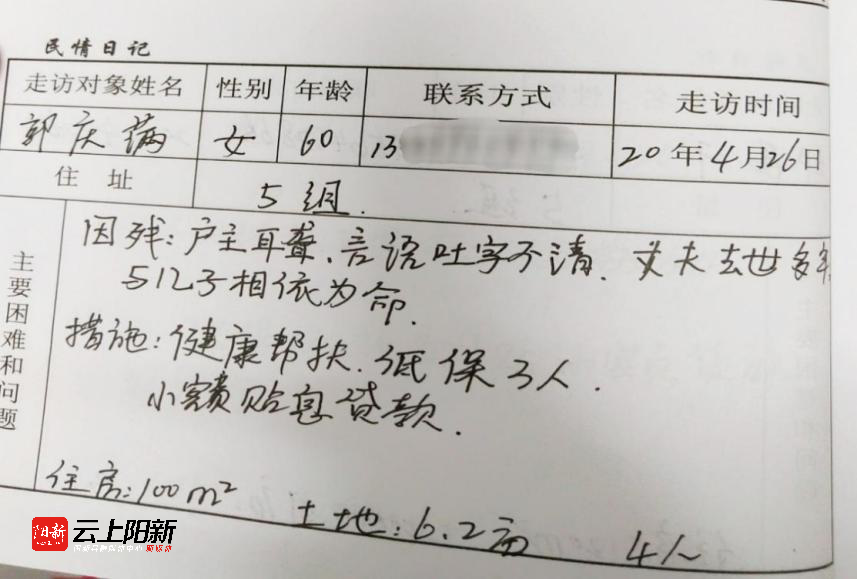 民情日记
走访对象姓名 性别 年龄 联系方式 走访时间
郭庆满 女 60 13 20年4月26日
住址 5组.
主要困难和问题
因残：户主耳聋、言语吐字不清、丈夫去世多年
与儿子相依为命.
措施：健康帮扶、低保3人.
小额贴息贷款.
住房：100m²
土地：6.2亩 4人
阳新 云上阳新